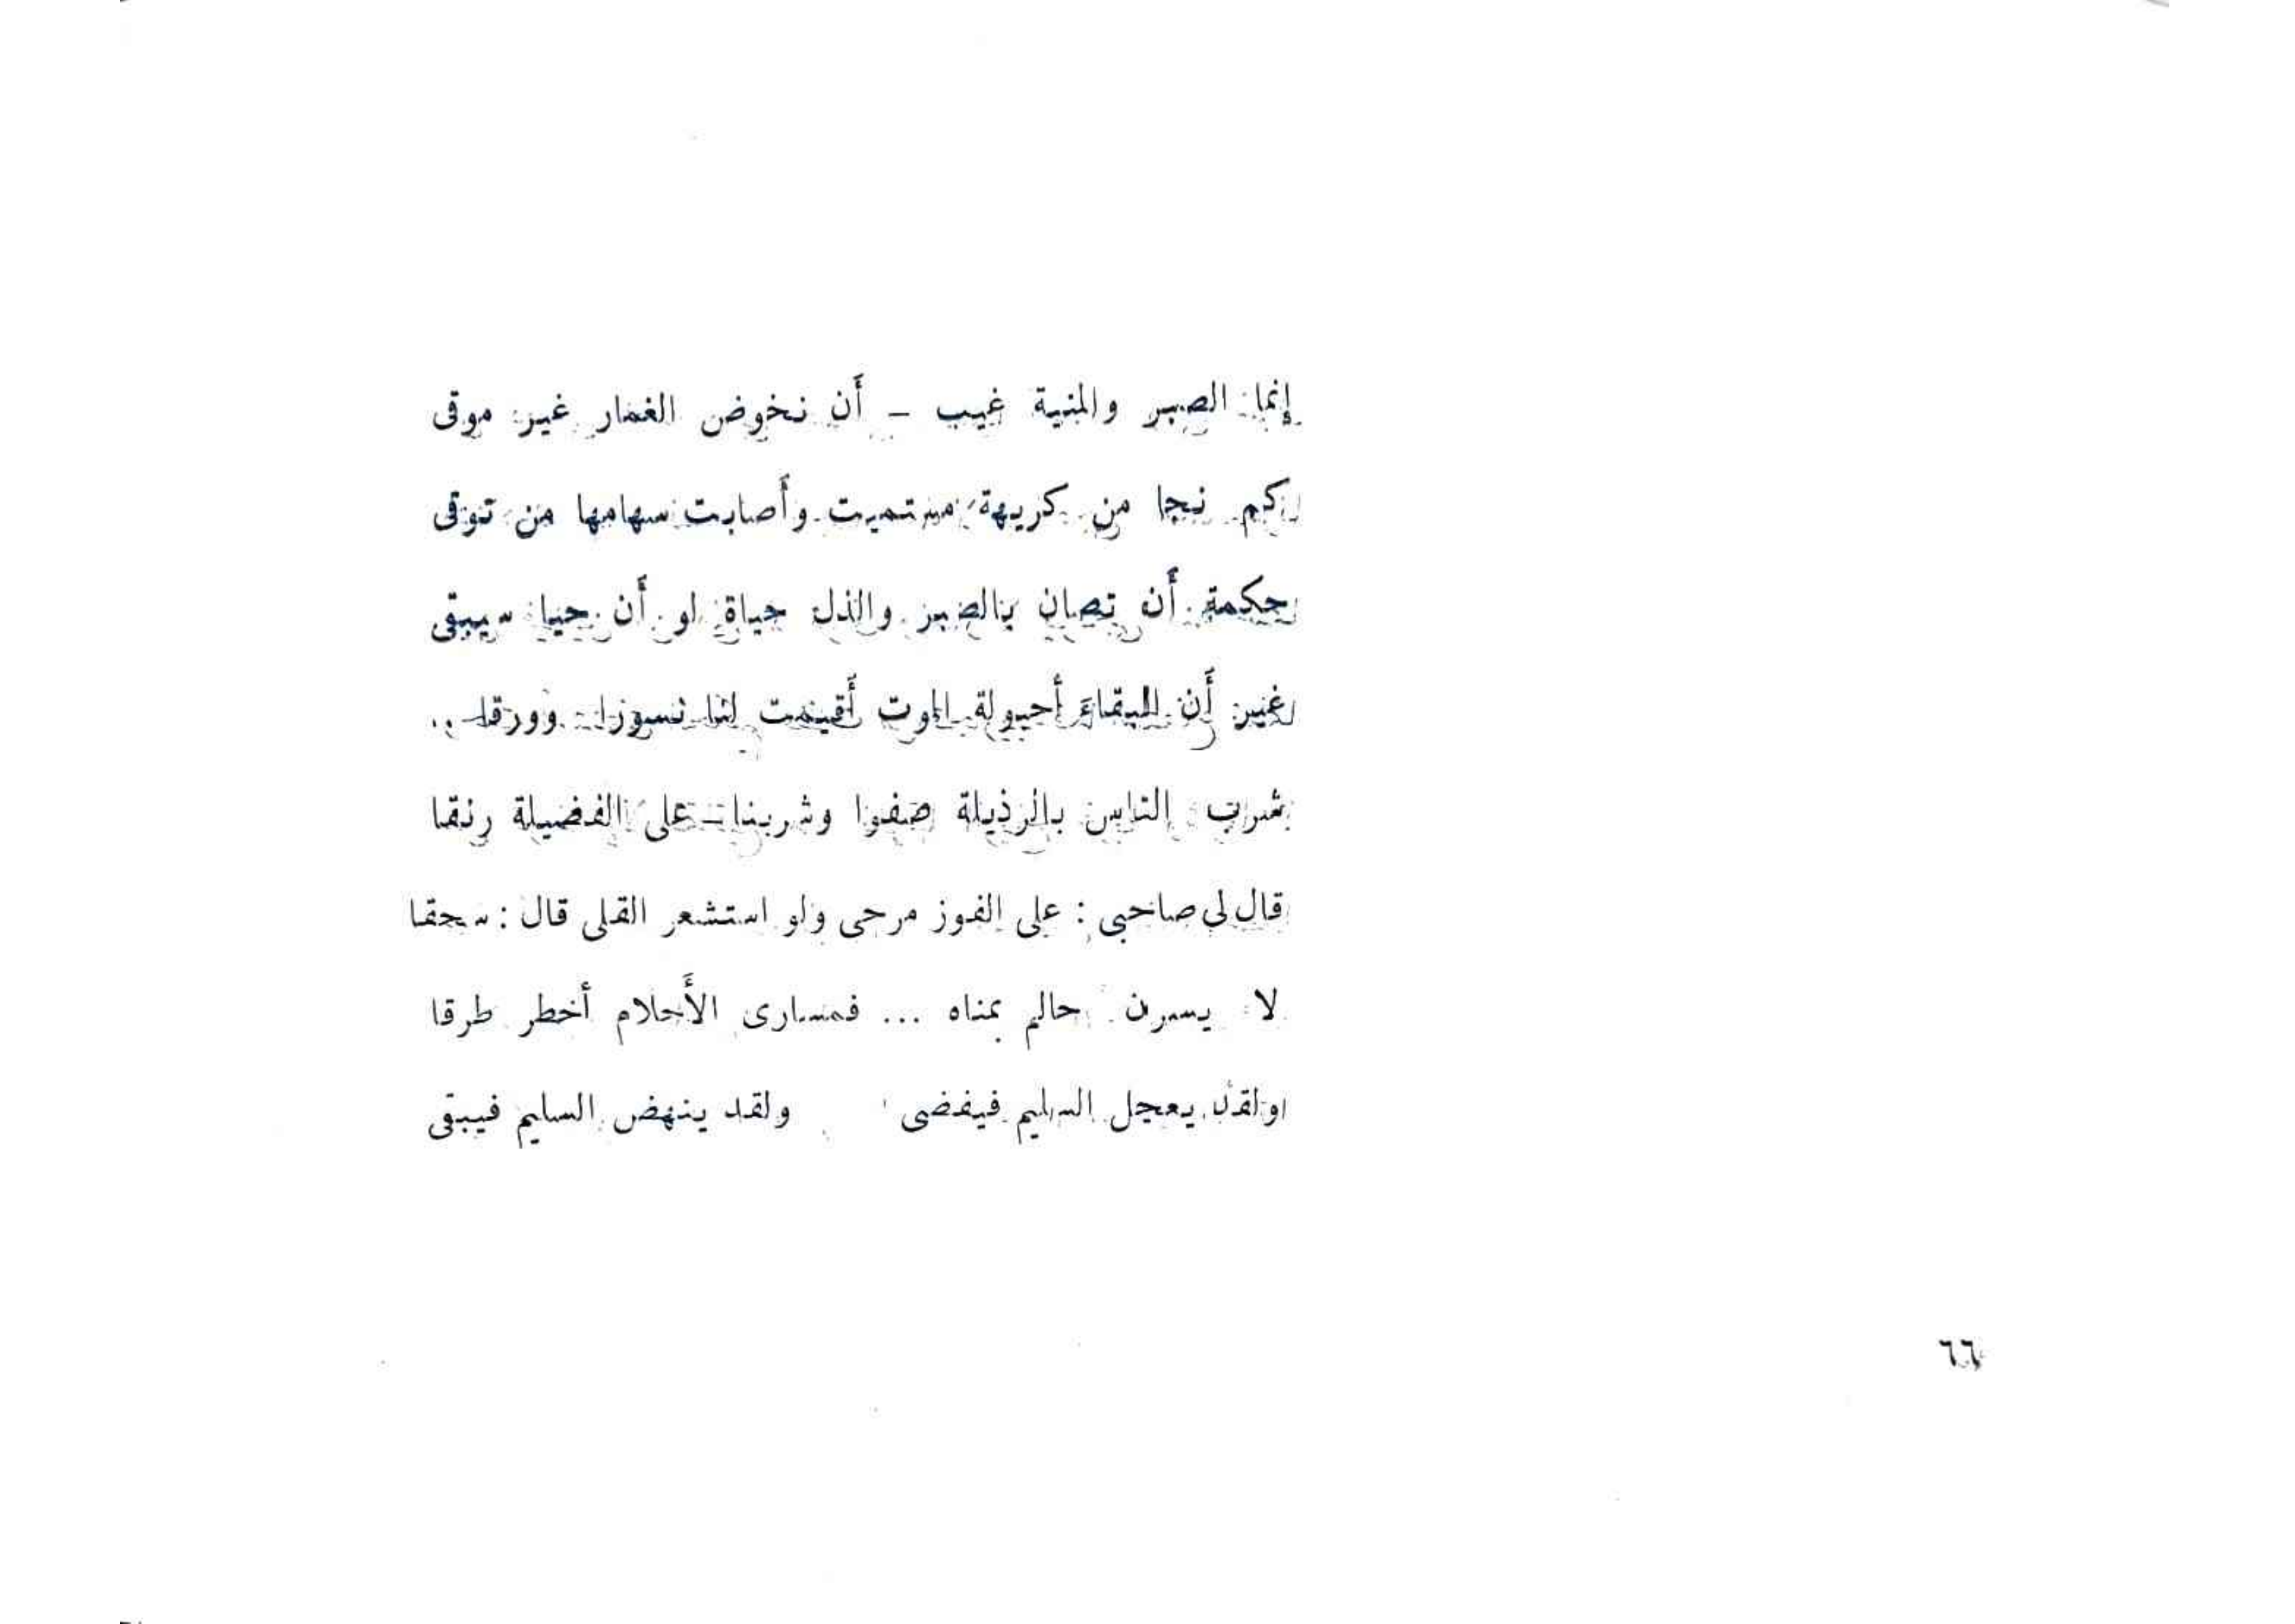 إنما الصبر والمنية غيب – أن نخوض الغمار غير موقى
كم نجا من كريهة مستميت وأصابت سهامها من توقى
حكمة أن تصان بالصبر والذل حياة لو أن حيا سيبقى
غير أن البقاء أحبولة الموت أقيمت لنا نسورا وورقا ..
شرب الناس بالرذيلة صفوا وشربنا – على الفضيلة رنقا
قال لى صاحبى : على الفوز مرحى ولو استشعر القلى قال : سحقا
لا يسرن حالم بمناه ... فمسارى الأحلام أخطر طرقا
ولقد يعجل السليم فيفضى ولقد ينهض السليم فيبقى
٦٦